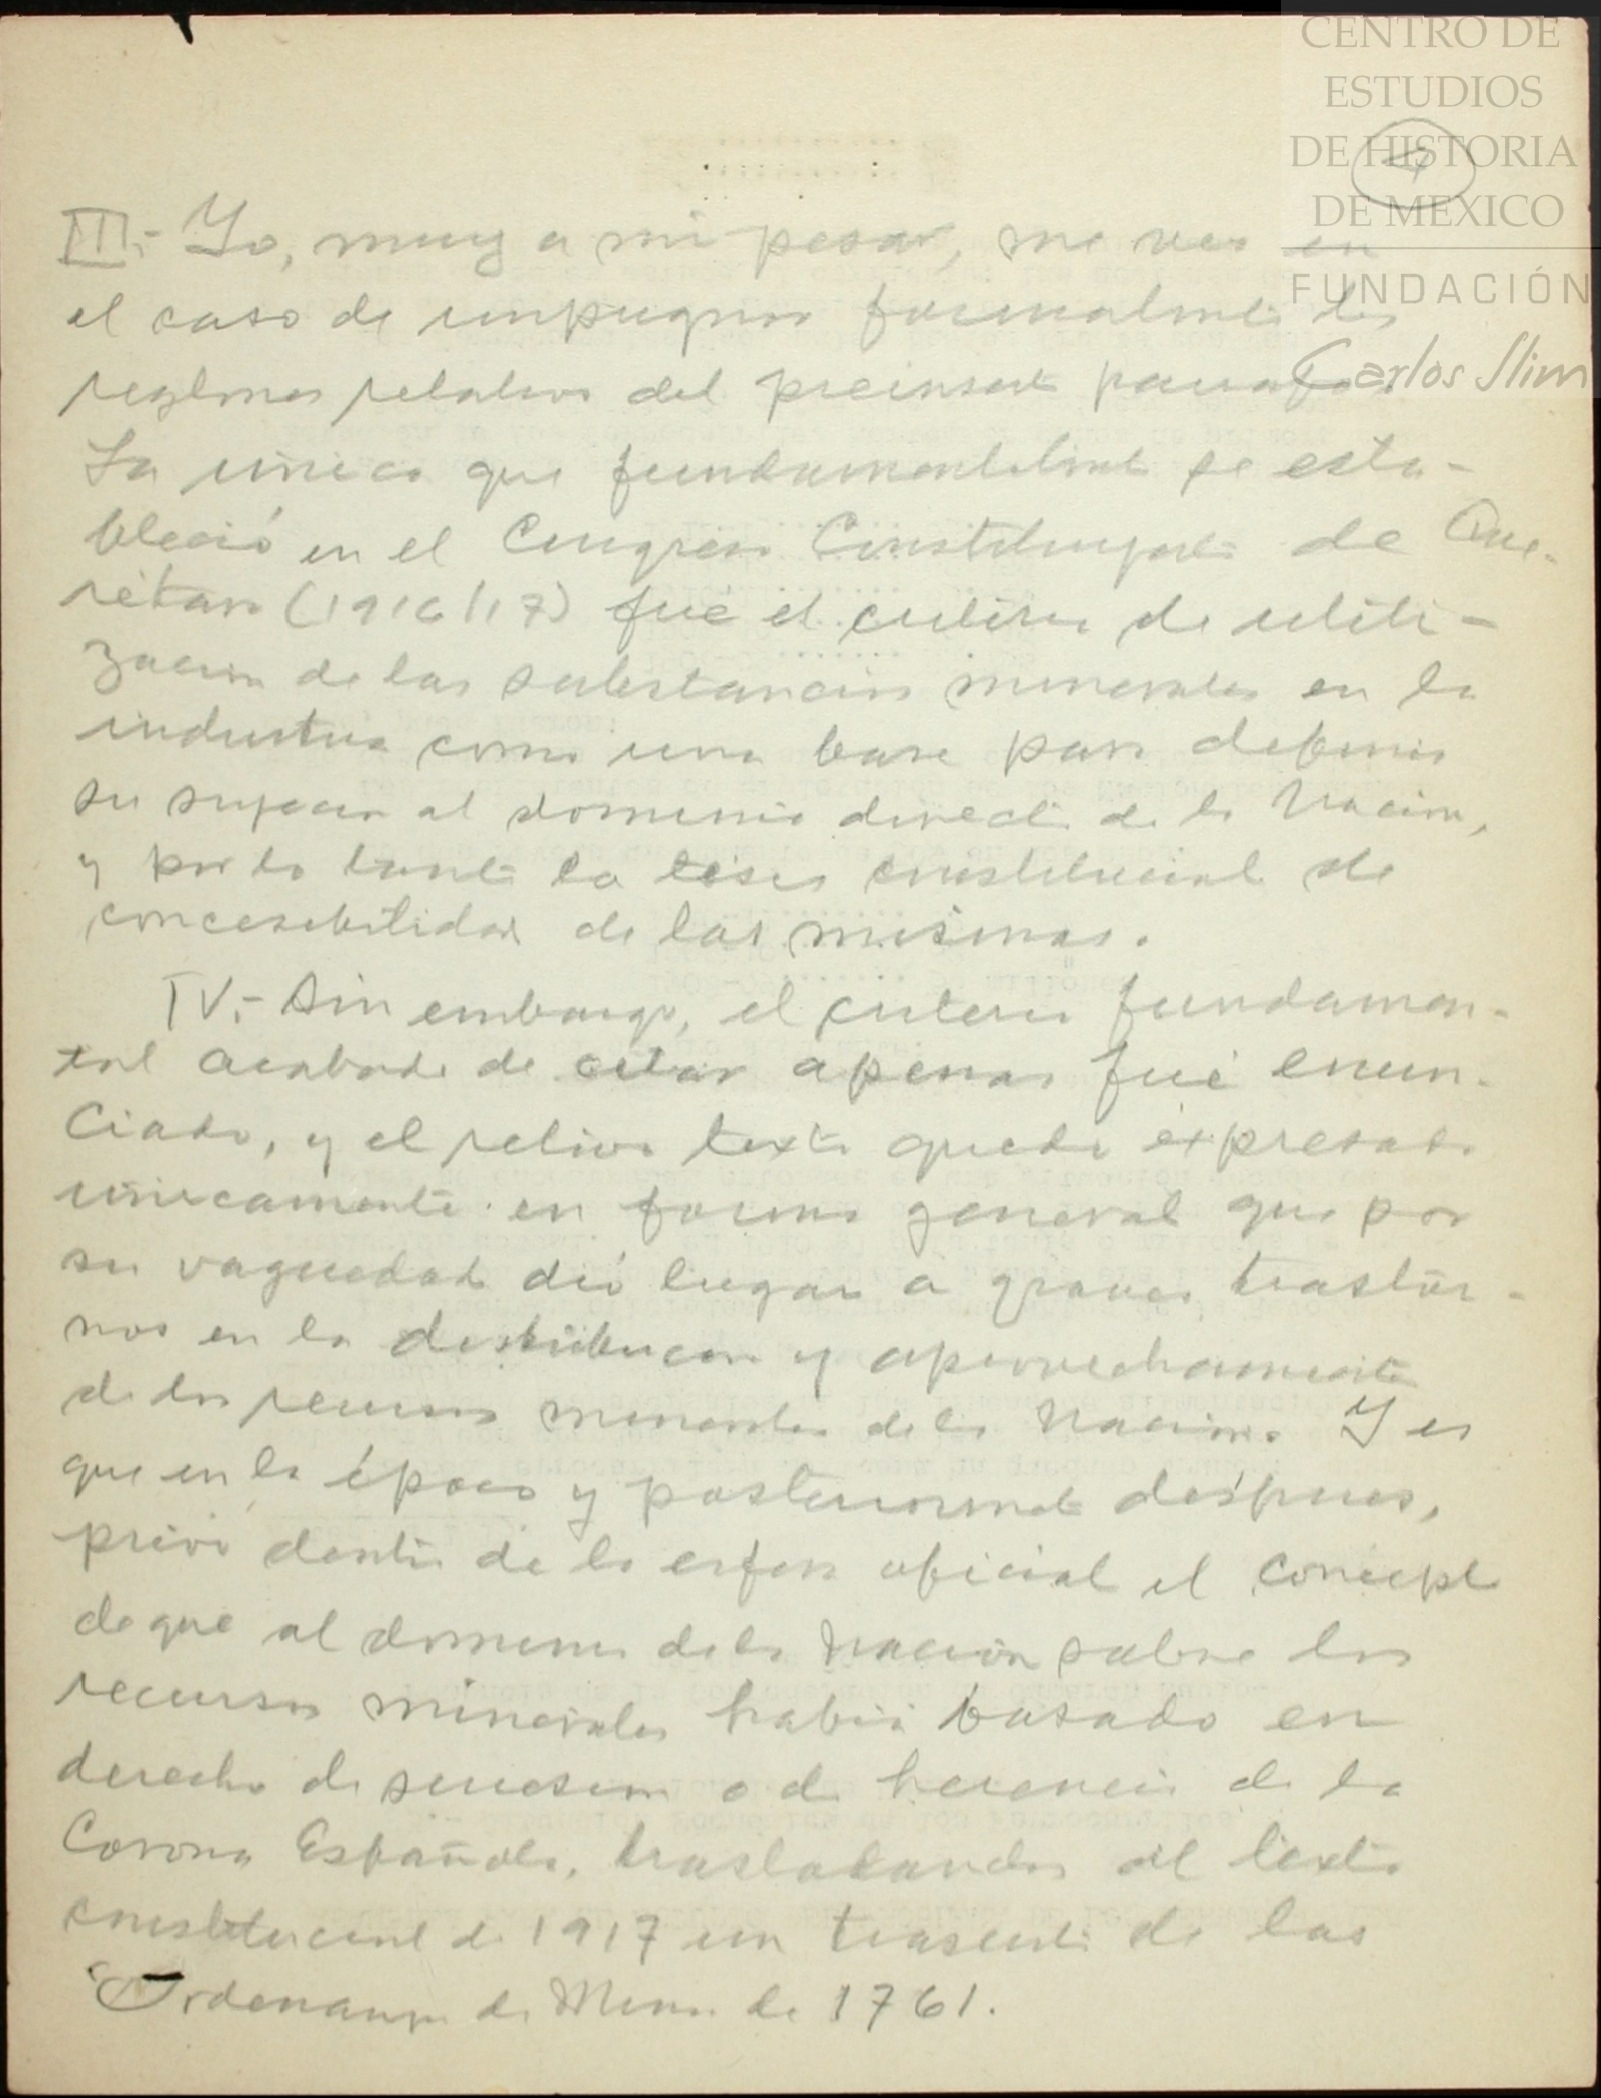 CENTRO DE
ESTUDIOS
DE HISTORIA
DE MEXICO
FUNDACIÓN
Carlos Slim
III.- Yo, muy a mi pesar, me veo en
el caso de impugnar formalmente los
renglones relativos del preinserto parrafo.
Lo unico que fundamentalmente se esta-
bleció en el Congreso Constituyente de Que-
rétaro (1916/17) fué el criterio de utili-
zacion de las substancias minerales en la
industria como una base para definir
su sujecion al dominio directo de la Nacion,
y por lo tanto la tésis constitucional de
concesibilidad de las mismas.
IV.- Sin embargo, el criterio fundamen-
tal acabado de citar apenas fué enun-
ciado, y el texto quedo expresado
únicamente en forma general que por
su vaguedad dió lugar a graves trastor-
nos en la distribucion y aprovechamiento
de los recursos minerales de la Nacion. Y es
que en la época y posteriormente despues,
privó dentro de la esfera oficial el concepto
de que el dominio de la Nación sobre los
recursos minerales había basado en
derecho de sucesion o de herencia de la
Corona Española, trasladandos al texto
constitucional de 1917 un trasunto de las
Ordenanzas de Minas de 1761.